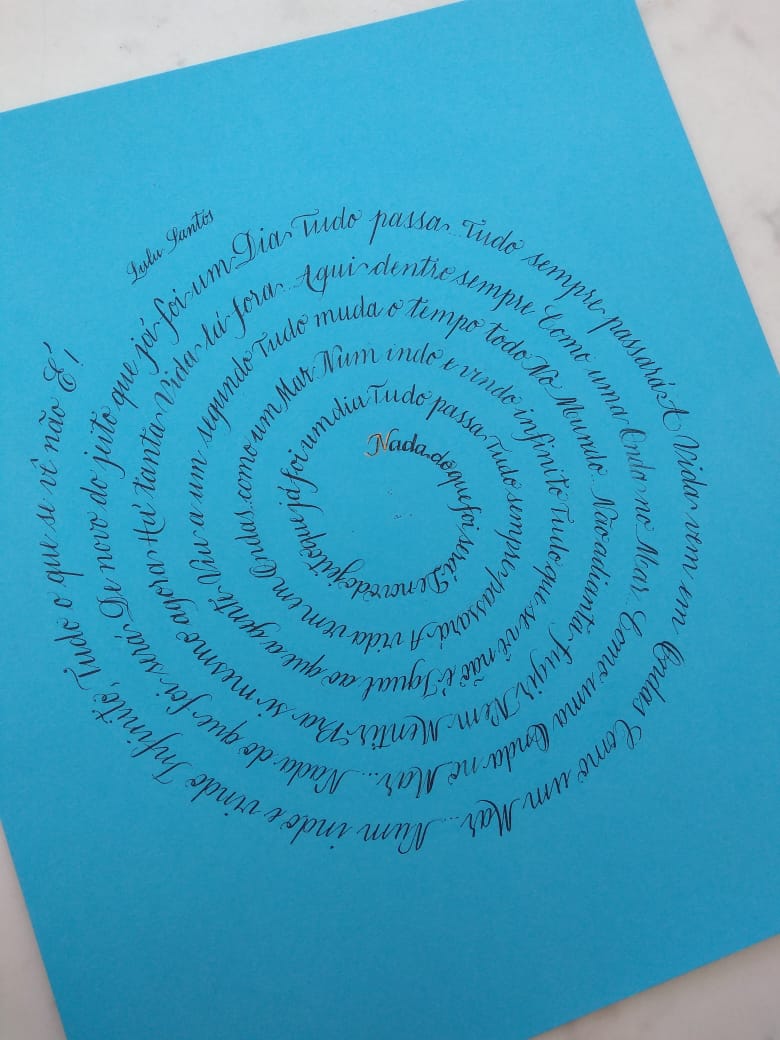 Nada do que foi será De novo do jeito que já foi um dia Tudo passa Tudo sempre passará A vida vem em Ondas como um Mar Num indo e vindo infinito Tudo que se vê não é Igual ao que a gente Viu a um segundo Tudo muda o tempo todo No Mundo. Não adianta fugir Nem Mentir Pra si mesmo agora Há tanta Vida lá fora... Aqui dentro sempre Como uma Onda no Mar... Como uma Onda no Mar... Nada do que foi será De novo do jeito que já foi um Dia Tudo passa... Tudo sempre passará A Vida vem em Ondas Como um Mar... Num indo e vindo Infinito, Tudo o que se vê não É!
Lulu Santos